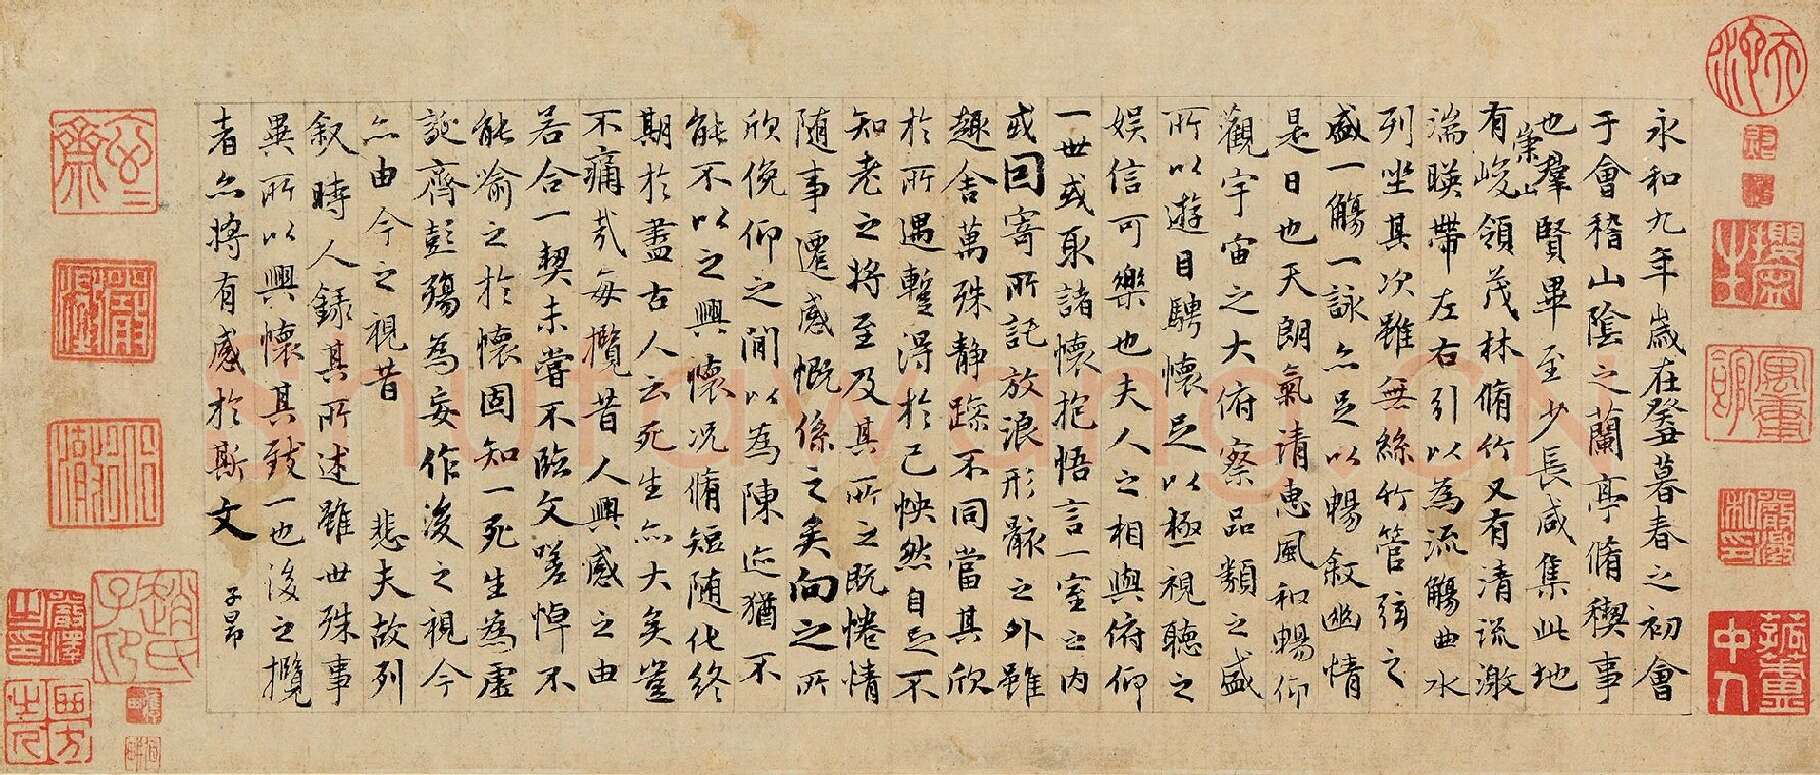 永和九年歲在癸丑暮春之初會
于會稽山陰之蘭亭脩稧事
也羣賢畢至少長咸集此地
有崇山峻領茂林脩竹又有清流激
湍暎帶左右引以為流觴曲水
列坐其次雖無絲竹管弦之
盛一觴一詠亦足以暢敘幽情
是日也天朗氣清惠風和暢仰
觀宇宙之大俯察品類之盛
所以遊目騁懷足以極視聽之
娛信可樂也夫人之相與俯仰
一世或取諸懷抱悟言一室之内
或因寄所託放浪形骸之外雖
趣舍萬殊静躁不同當其欣
於所遇蹔得於己怏然自足不
知老之將至及其所之既惓情
隨事遷感慨係之矣向之所
欣俛仰之閒以為陳迹猶不
能不以之興懷況脩短隨化終
期於盡古人云死生亦大矣豈
不痛哉每攬昔人興感之由
若合一契未嘗不臨文嗟悼不
能喻之於懷固知一死生為虛
誕齊彭殤為妄作後之視今
亦由今之視昔悲夫故列
叙時人錄其所述雖世殊事
異所以興懷其致一也後之攬
者亦將有感於斯文
子昂
shufawang.CN
趙氏子昂
嚴澤之印
嚴澂私印